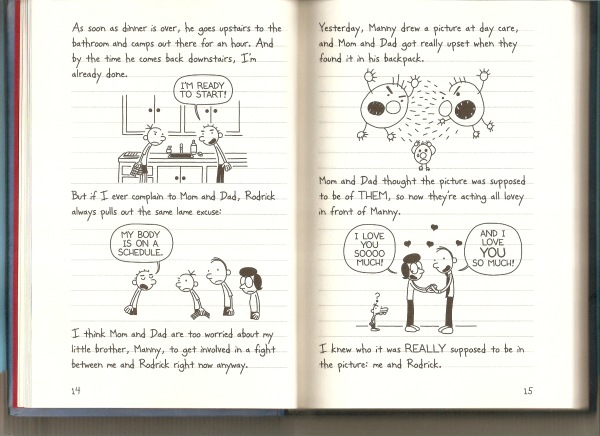 As soon as dinner is over, he goes upstairs to the
bathroom and camps out there for an hour. And
by the time he comes back downstairs, I'm
already done.
I'M READY
TO START!
But if I ever complain to Mom and Dad, Rodrick
always pulls out the same lame excuse:
MY BODY
IS ON A
SCHEDULE.
I think Mom and Dad are too worried about my
little brother, Manny, to get involved in a fight
between me and Rodrick right now anyway.
14
Yesterday, Manny drew a picture at day care,
and Mom and Dad got really upset when they
found it in his backpack.
Mom and Dad thought the picture was supposed
to be of THEM, so now they're acting all lovey
in front of Manny.
I LOVE
YOU
SOOOO
MUCH!
AND I
LOVE
YOU
SO MUCH!
?
I knew who it was REALLY supposed to be in
the picture: me and Rodrick.
15